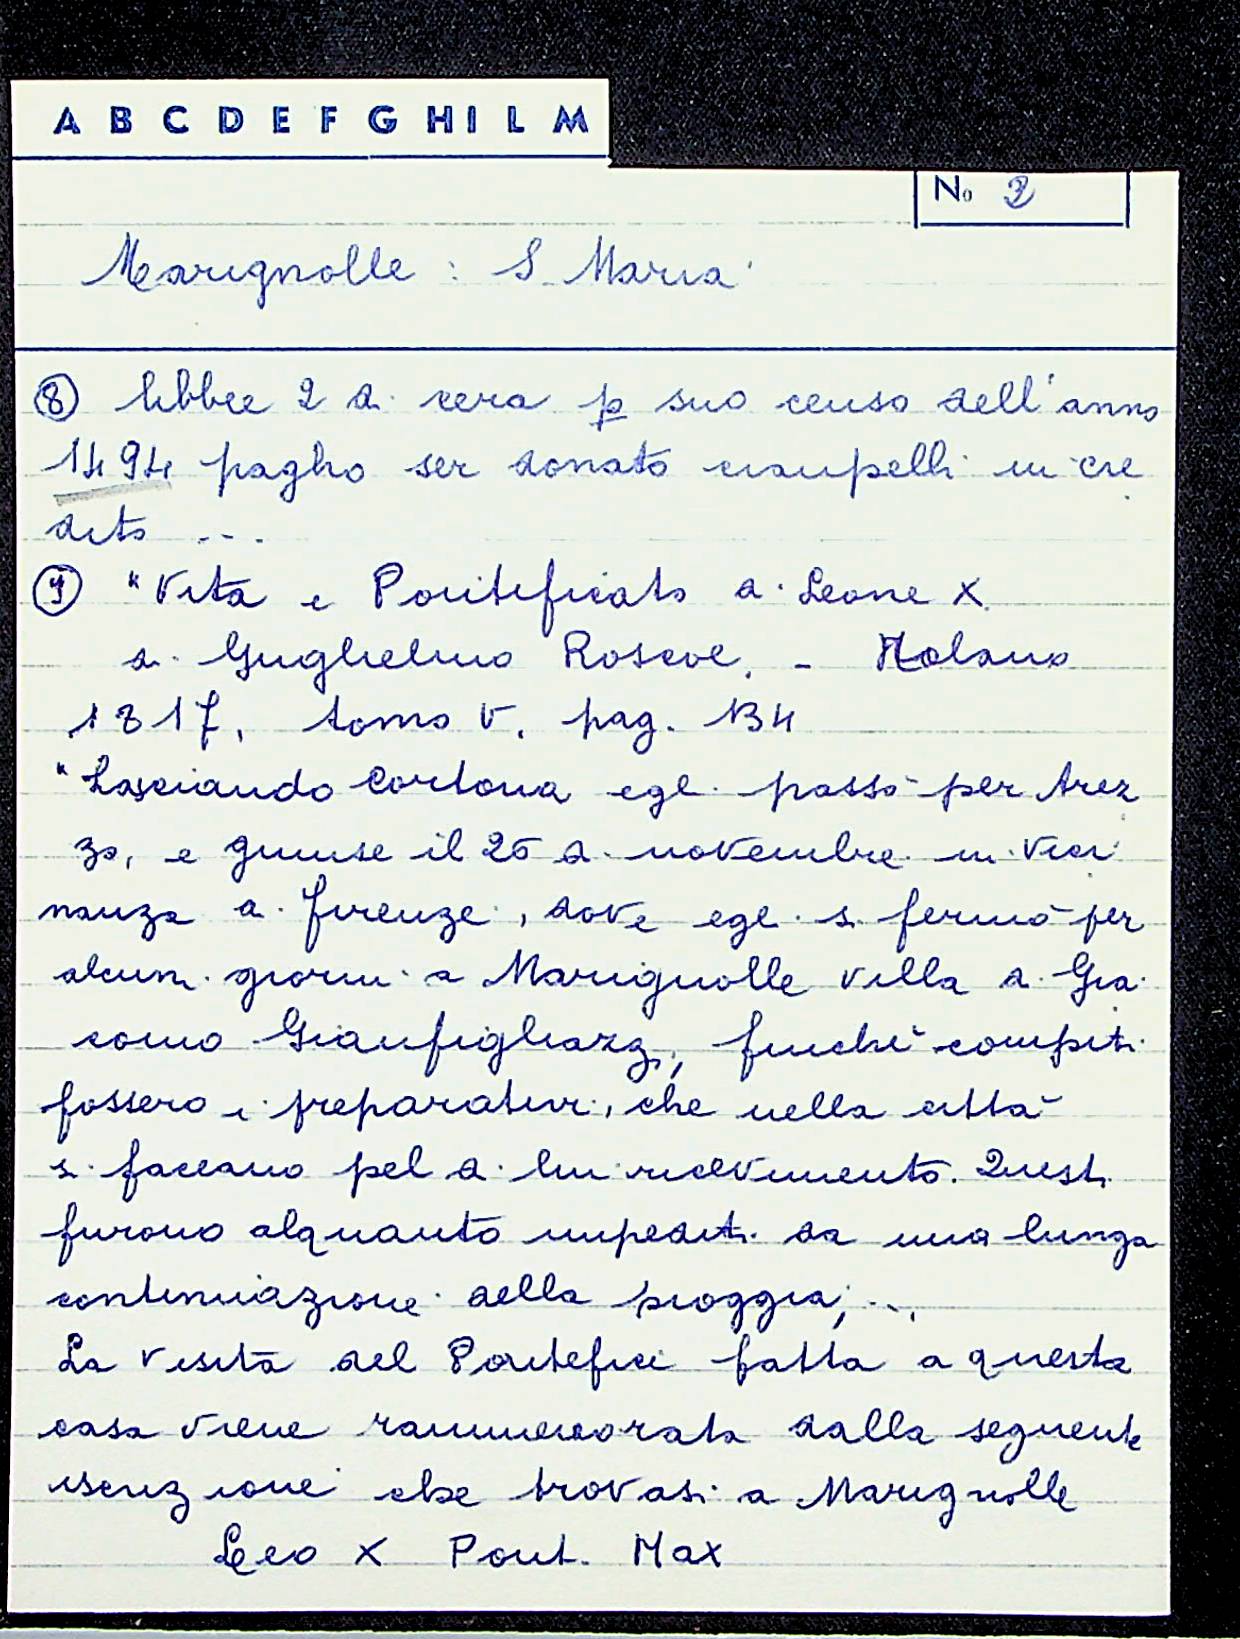 A B C D E F G H I L M
No 3
Marignolle : S. Maria
⑧ libbre 2 di cera p suo censo dell'anno
1494 pagho ser donato ciampelli in cre
dito ...
⑨ "Vita e Pontificato di Leone X
di Guglielmo Roscoe. - Milano
1817, tomo V, pag. 134
"Lasciando Cortona egli passò per Arez
zo, e giunse il 25 di novembre in vici
nanza di Firenze, dove egli si fermò per
alcuni giorni a Marignolle villa di Gia
como Gianfigliazzi, finché compiti
fossero i preparativi, che nella città
si faceano pel di lui ricevimento. Questi
furono alquanto impediti da una lunga
continuazione della pioggia; ...
La visita del Pontefice fatta a questa
casa viene rammemorata dalla seguente
iscrizione che trovasi a Marignolle
Leo X Pont. Max